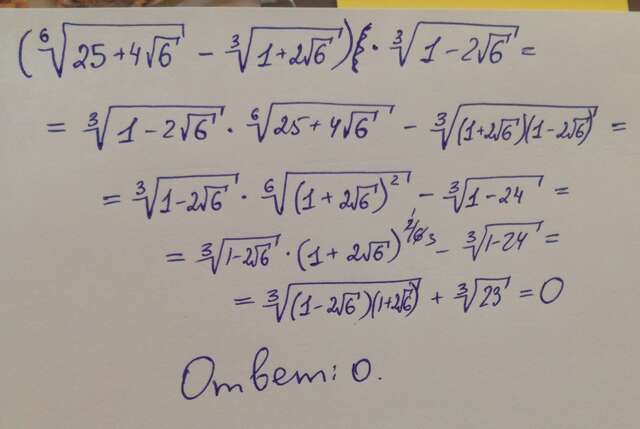 (⁶√(25+4√6) − ³√(1+2√6)) · ³√(1−2√6) =
= ³√(1−2√6) · ⁶√(25+4√6) − ³√((1+2√6)(1−2√6)) =
= ³√(1−2√6) · ⁶√((1+2√6)²) − ³√(1−24) =
= ³√(1−2√6) · (1+2√6)^(1/3) − ³√(1−24) =
= ³√((1−2√6)(1+2√6)) + ³√23 = 0
Ответ: 0.